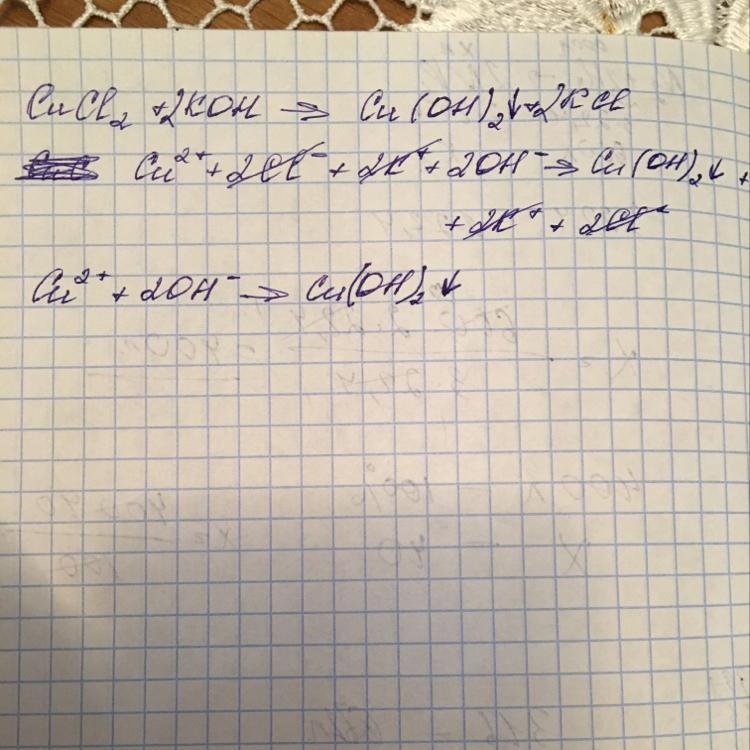 CuCl₂ + 2KOH → Cu(OH)₂↓ + 2KCl
Cu²⁺ + 2Cl⁻ + 2K⁺ + 2OH⁻ → Cu(OH)₂↓ +
+ 2K⁺ + 2Cl⁻
Cu²⁺ + 2OH⁻ → Cu(OH)₂↓